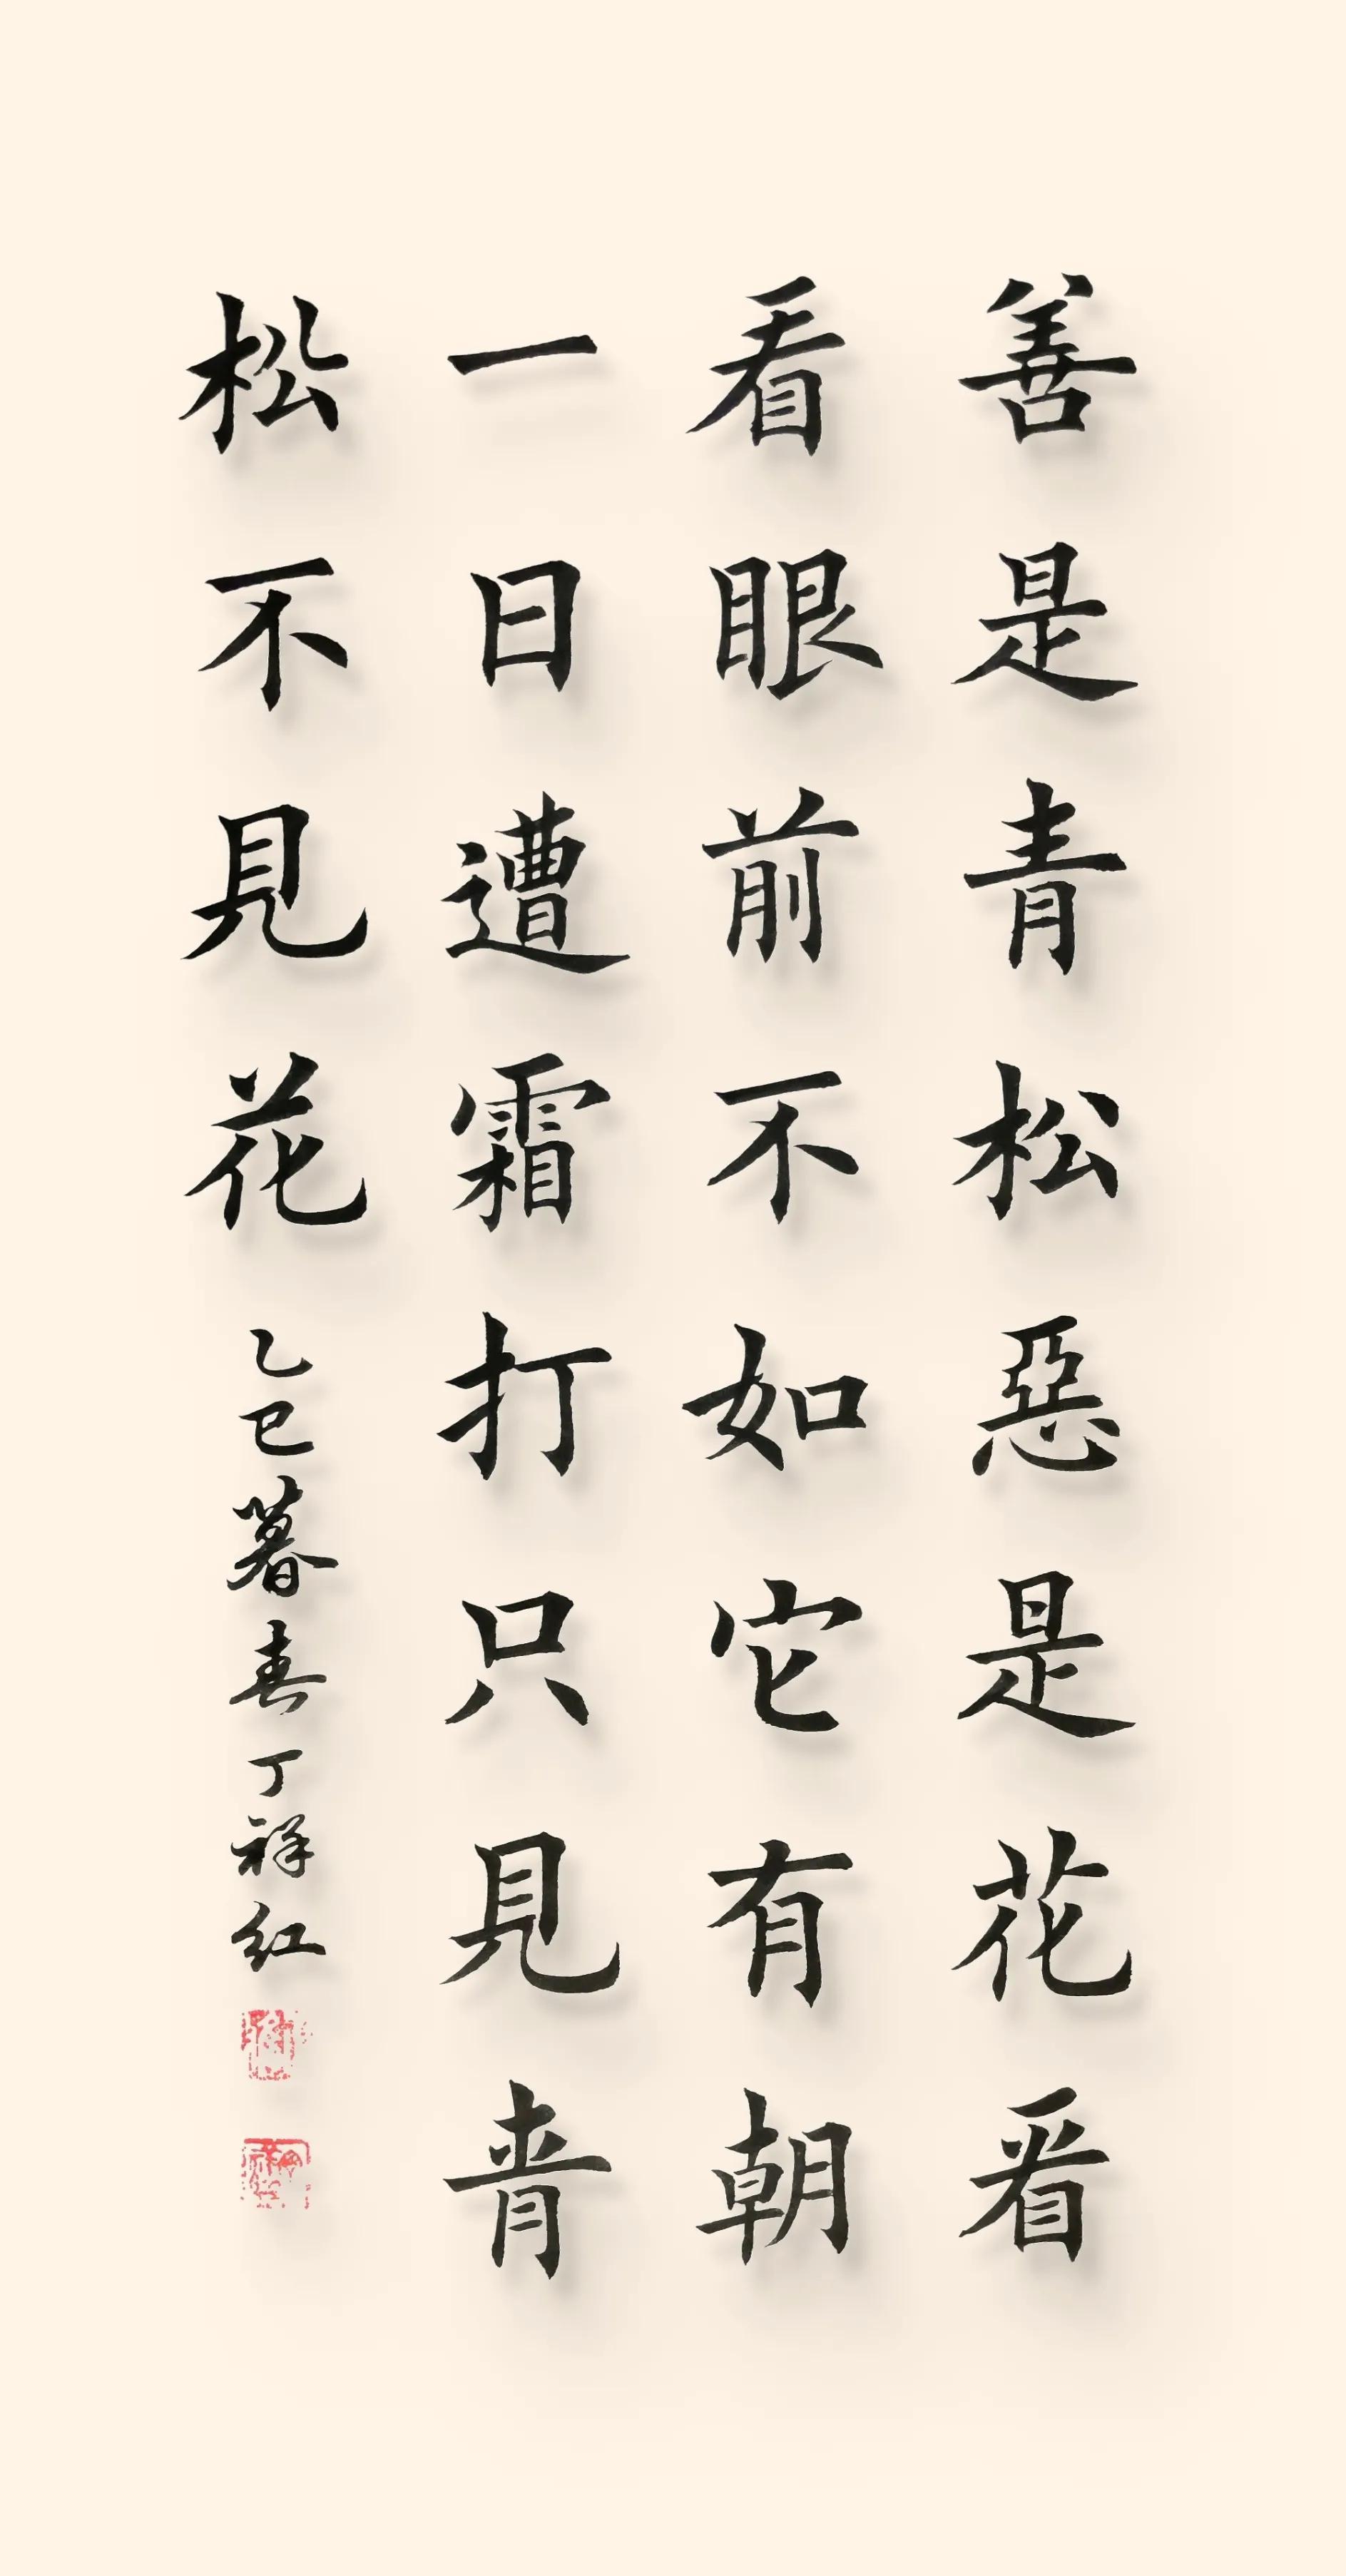 善是青松惡是花看
看眼前不如它有朝
一日遭霜打只見青
松不見花
乙巳暮春丁祥红